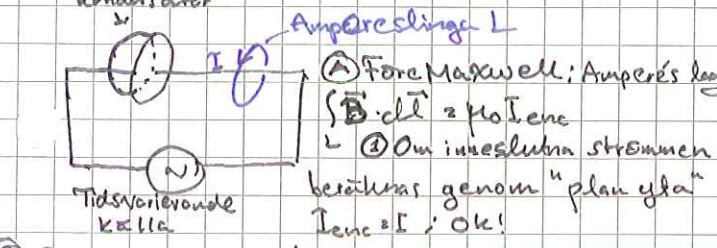 Kondensator
Ampereslinga L
I
Ⓐ Före Maxwell: Amperés lag
∫B⃗·dl⃗ = μ₀Ienc
L ① Om inneslutna strömmen
beräknas genom "plan yta"
Ienc = I ; OK!
Tidsvarierande
källa